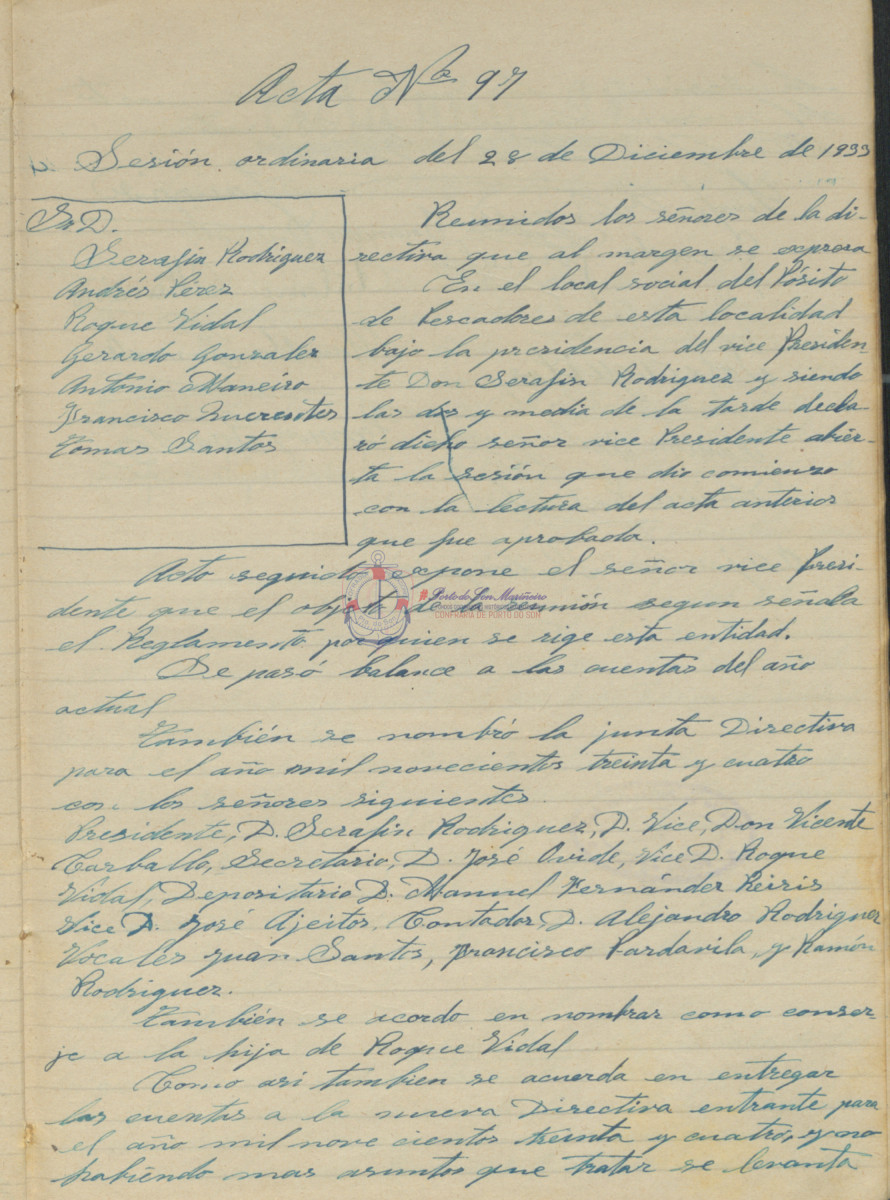 Acta Nº 97
Sesión ordinaria del 28 de Diciembre de 1933
Sr D.
Serafin Rodriguez
Andrés Pérez
Roque Vidal
Gerardo Gonzalez
Antonio Maneiro
Francisco
Tomas Santos
Reunidos los señores de la di-
rectiva que al margen se expresa
En el local social del Pósito
de Pescadores de esta localidad
bajo la presidencia del vice Presiden-
te Don Serafin Rodriguez y siendo
las dos y media de la tarde decla-
ró dicho señor vice Presidente abier-
ta la sesión que dio comienzo
con la lectura del acta anterior
que fue aprobada.
Acto seguido expone el señor vice Presi-
dente que el objeto de la reunión segun señala
el Reglamento por quien se rige esta entidad.
De pasó balance a las cuentas del año
actual
También se nombró la junta Directiva
para el año mil novecientos treinta y cuatro
con los señores siguientes.
Presidente, D. Serafin Rodriguez, D. Vice, Don Vicente
Carballo, Secretario, D. José Ovide, Vice D. Roque
Vidal, Depositario D. Manuel Fernández Reiris
Vice D. José Ajeitos, Contador, D. Alejandro Rodriguez
Vocales Juan Santos, Francisco Pardavila, y Ramón
Rodriguez.
También se acordo en nombrar como conser-
je a la hija de Roque Vidal
Como asi tambien se acuerda en entregar
las cuentas a la nueva Directiva entrante para
el año mil nove cientos treinta y cuatro, y no
habiendo mas asuntos que tratar se levanta
Porto do Son Mariñeiro
CONFRARÍA DE PORTO DO SON